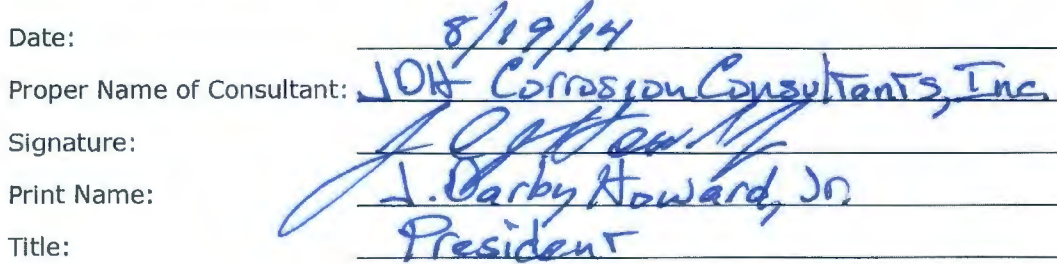 Date: 8/19/14
Proper Name of Consultant: JDH Corrosion Consultants, Inc.
Signature:
Print Name: J. Darby Howard, Jr.
Title: President